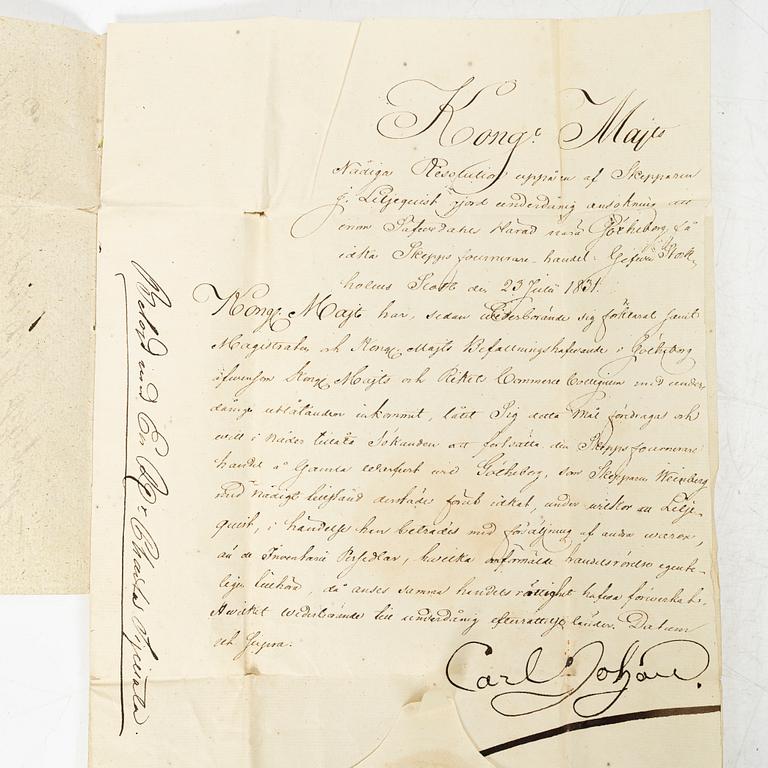 Kongl. Majts
Nådiga Resolution uppå en af Skepparen
J. Liljequist gjord underdånig ansökning att
inom Säfvedahls Härad nära Götheborg få
idka Skepps fournerare-handel. Gifwen Stock-
holms Slott den 23 Julii 1831.
Kongl. Majts har, sedan wederbörande sig förklarat samt
Magistraten och Kongl. Majts Befallningshafwande i Götheborg
äfwensom Kongl. Majts och Rikets Commerce Collegium med under-
dåniga utlåtanden inkommit, låtit Sig detta Mål föredragas och
will i Nåder tillåta Sökanden att fortsätta den Skepps fournerare
handel å Gamla Warfwet wid Götheborg, som Skepparen Weinberg
med Nådigt tillstånd derstädes förut idkat, under wilkor att Lilje-
quist, i händelse han beträdes med försäljning af andra waror,
än de Inventarii Persedlar, hwilka omförmälde handelsrörelse egent-
ligen tillhöra, då anses samma handels rättighet hafwa förwerkat.
Hwilket wederbörande till underdånig efterrättelse länder. Datum
ut Supra.
Carl Johan.
med Charta Sigillata.